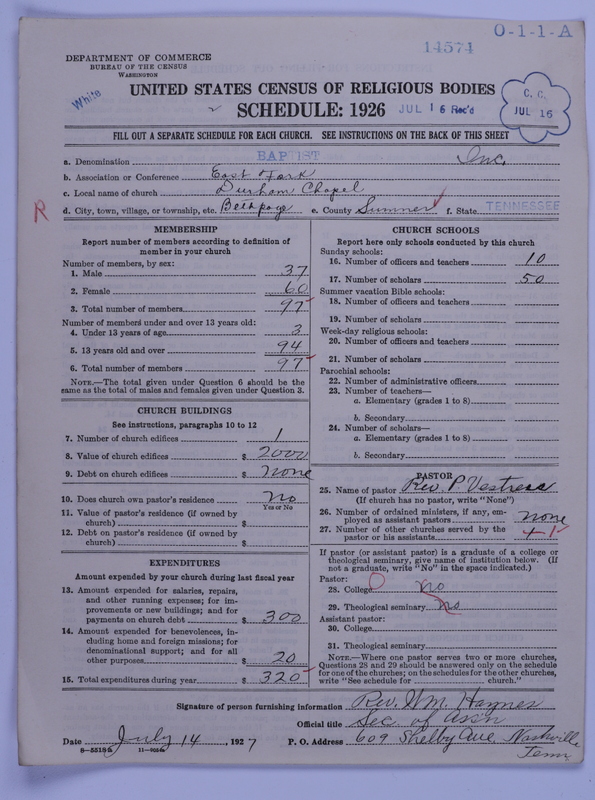 O-1-1-A
14574
DEPARTMENT OF COMMERCE
BUREAU OF THE CENSUS
WASHINGTON
White
UNITED STATES CENSUS OF RELIGIOUS BODIES
SCHEDULE: 1926
JUL 16 Rec'd
C. C.
JUL 16
FILL OUT A SEPARATE SCHEDULE FOR EACH CHURCH. SEE INSTRUCTIONS ON THE BACK OF THIS SHEET
a. Denomination BAPTIST Inc.
b. Association or Conference East Fork
c. Local name of church Durham Chapel
R
d. City, town, village, or township, etc. Bethpage e. County Sumner f. State TENNESSEE
MEMBERSHIP
Report number of members according to definition of
member in your church
Number of members, by sex:
1. Male 37
2. Female 60
3. Total number of members 97
Number of members under and over 13 years old:
4. Under 13 years of age 3
5. 13 years old and over 94
6. Total number of members 97
NOTE.—The total given under Question 6 should be the
same as the total of males and females given under Question 3.
CHURCH BUILDINGS
See instructions, paragraphs 10 to 12
7. Number of church edifices 1
8. Value of church edifices $ 2000
9. Debt on church edifices $ none
10. Does church own pastor's residence No
Yes or No
11. Value of pastor's residence (if owned by
church) $
12. Debt on pastor's residence (if owned by
church) $
EXPENDITURES
Amount expended by your church during last fiscal year
13. Amount expended for salaries, repairs,
and other running expenses; for im-
provements or new buildings; and for
payments on church debt $ 300
14. Amount expended for benevolences, in-
cluding home and foreign missions; for
denominational support; and for all
other purposes $ 20
15. Total expenditures during year $ 320
CHURCH SCHOOLS
Report here only schools conducted by this church
Sunday schools:
16. Number of officers and teachers 10
17. Number of scholars 50
Summer vacation Bible schools:
18. Number of officers and teachers
19. Number of scholars
Week-day religious schools:
20. Number of officers and teachers
21. Number of scholars
Parochial schools:
22. Number of administrative officers
23. Number of teachers—
a. Elementary (grades 1 to 8)
b. Secondary
24. Number of scholars—
a. Elementary (grades 1 to 8)
b. Secondary
PASTOR
25. Name of pastor Rev. P. Vestress
(If church has no pastor, write "None")
26. Number of ordained ministers, if any, em-
ployed as assistant pastors none
27. Number of other churches served by the
pastor or his assistants 1
If pastor (or assistant pastor) is a graduate of a college or
theological seminary, give name of institution below. (If
not a graduate, write "No" in the space indicated.)
Pastor:
28. College No
29. Theological seminary No
Assistant pastor:
30. College
31. Theological seminary
NOTE.—Where one pastor serves two or more churches,
Questions 28 and 29 should be answered only on the schedule
for one of the churches; on the schedules for the other churches,
write "See schedule for church."
Signature of person furnishing information Rev. Wm. Haynes
Official title Sec of Assn
Date July 14, 1927 P. O. Address 609 Shelby Ave. Nashville
Tenn
8-5518